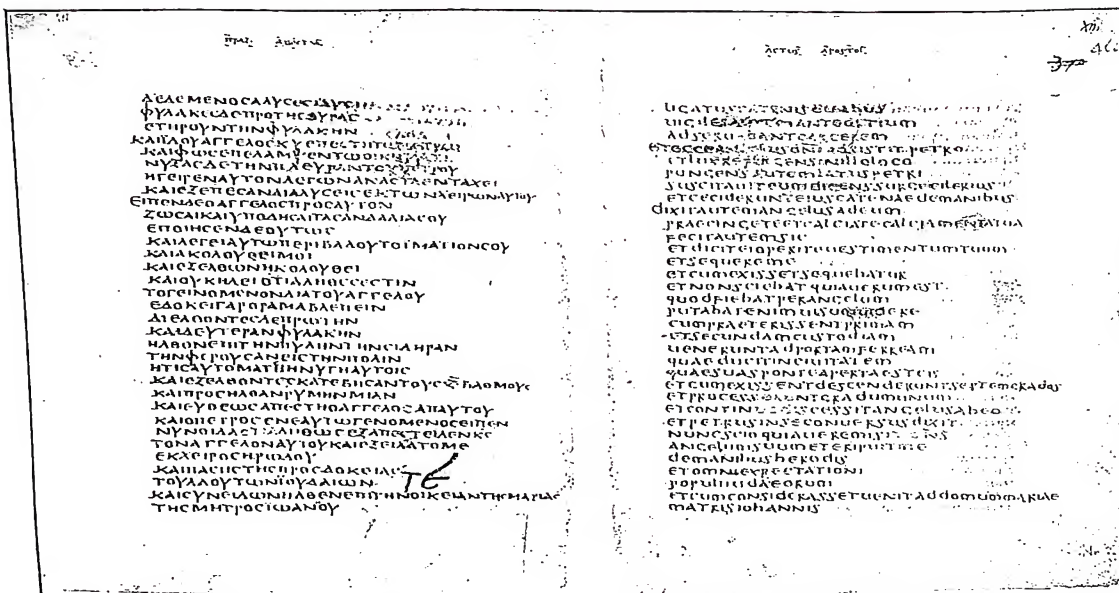 ΠΡΑΞ ΑΠΟΣΤΟΛ
ΔΕΔΕΜΕΝΟΣΑΛΥΣΕΣΙΔΥΣΙ
ΦΥΛΑΚΕΣΔΕΠΡΟΤΗΣΘΥΡΑΣ
ΕΤΗΡΟΥΝΤΗΝΦΥΛΑΚΗΝ
ΚΑΙΙΔΟΥΑΓΓΕΛΟΣΚΥΕΠΕΣΤΗΤΩΠΕΤΡΩ
ΚΑΙΦΩΣΕΠΕΛΑΜΨΕΝΤΩΟΙΚΗΜΑΤΙ
ΝΥΞΑΣΔΕΤΗΝΠΛΕΥΡΑΝΤΟΥΠΕΤΡΟΥ
ΗΓΕΙΡΕΝΑΥΤΟΝΛΕΓΩΝΑΝΑΣΤΑΕΝΤΑΧΕΙ
ΚΑΙΕΞΕΠΕΣΑΝΑΙΑΛΥΣΕΙΣΕΚΤΩΝΧΕΙΡΩΝΑΥΤΟΥ
ΕΙΠΕΝΔΕΟΑΓΓΕΛΟΣΠΡΟΣΑΥΤΟΝ
ΖΩΣΑΙΚΑΙΥΠΟΔΗΣΑΙΤΑΣΑΝΔΑΛΙΑΣΟΥ
ΕΠΟΙΗΣΕΝΔΕΟΥΤΩΣ
ΚΑΙΛΕΓΕΙΑΥΤΩΠΕΡΙΒΑΛΟΥΤΟΙΜΑΤΙΟΝΣΟΥ
ΚΑΙΑΚΟΛΟΥΘΕΙΜΟΙ
ΚΑΙΕΞΕΛΘΩΝΗΚΟΛΟΥΘΕΙ
ΚΑΙΟΥΚΗΔΕΙΟΤΙΑΛΗΘΕΣΕΣΤΙΝ
ΤΟΓΕΙΝΟΜΕΝΟΝΔΙΑΤΟΥΑΓΓΕΛΟΥ
ΕΔΟΚΕΙΓΑΡΟΡΑΜΑΒΛΕΠΕΙΝ
ΔΙΕΛΘΟΝΤΕΣΔΕΠΡΩΤΗΝ
ΚΑΙΔΕΥΤΕΡΑΝΦΥΛΑΚΗΝ
ΗΛΘΟΝΕΠΙΤΗΝΠΥΛΗΝΤΗΝΣΙΔΗΡΑΝ
ΤΗΝΦΕΡΟΥΣΑΝΕΙΣΤΗΝΠΟΛΙΝ
ΗΤΙΣΑΥΤΟΜΑΤΗΗΝΥΓΗΑΥΤΟΙΣ
ΚΑΙΕΞΕΛΘΟΝΤΕΣΚΑΤΕΒΗΣΑΝΤΟΥΣΖΒΑΘΜΟΥΣ
ΚΑΙΠΡΟΣΗΛΘΑΝΡΥΜΗΝΜΙΑΝ
ΚΑΙΕΥΘΕΩΣΑΠΕΣΤΗΟΑΓΓΕΛΟΣΑΠΑΥΤΟΥ
ΚΑΙΟΠΕΤΡΟΣΕΝΕΑΥΤΩΓΕΝΟΜΕΝΟΣΕΙΠΕΝ
ΝΥΝΟΙΔΑΟΤΙΑΛΗΘΩΣΕΞΑΠΕΣΤΕΙΛΕΝΚΣ
ΤΟΝΑΓΓΕΛΟΝΑΥΤΟΥΚΑΙΕΞΕΙΛΑΤΟΜΕ
ΕΚΧΕΙΡΟΣΗΡΩΔΟΥ
ΚΑΙΠΑΣΗΣΤΗΣΠΡΟΣΔΟΚΕΙΑΣ
ΤΟΥΛΑΟΥΤΩΝΙΟΥΔΑΙΩΝ
ΤΕ
ΚΑΙΣΥΝΕΙΔΩΝΗΛΘΕΝΕΠΙΤΗΝΟΙΚΕΙΑΝΤΗΣΜΑΡΙΑΣ
ΤΗΣΜΗΤΡΟΣΙΩΑΝΟΥ
ACTUS APOSTOL
LIGATUSCATENISDUABUS
UIGILESAUTEMANTEOSTIUM
ADSERUABANTCARCEREM
ETECCEANGELUSDNIADSISTITPETRO
ETLUXREFULGENSINILLOLOCO
PUNGENSAUTEMLATUSPETRI
SUSCITAUITEUMDICENSSURGECELERIUS
ETCECIDERUNTEIUSCATENAEDEMANIBUS
DIXITAUTEMANGELUSADEUM
PRAECINGETEETCALCIATECALCIAMENTATUA
FECITAUTEMSIC
ETDICITEIOPERIREUESTIMENTUMTUUM
ETSEQUEREME
ETCUMEXISSETSEQUEBATUR
ETNONSCIEBATQUIAUERUMEST
QUODFIEBATPERANGELUM
PUTABATENIMUISUMUIDERE
CUMPRAETERISSENTPRIMAM
ETSECUNDAMCUSTODIAM
UENERUNTADPORTAMFERREAM
QUAEDUCITINCIUITATEM
QUAESUASPONTEAPERTAESTEIS
ETCUMEXISSENTDESCENDERUNTSEPTEMGRADOS
ETPROCESSERUNTGRADUMUNUM
ETCONTINUODISCESSITANGELUSABEO
ETPETRUSINSECONUERSUSDIXIT
NUNCSCIOQUIAUEREMISITDNS
ANGELUMSUUMETERIPUITME
DEMANIBUSHERODIS
ETOMNIEXPECTATIONI
POPULIIUDAEORUM
ETCUMCONSIDERASSETUENITADDOMUMMARIAE
MATRISIOHANNIS